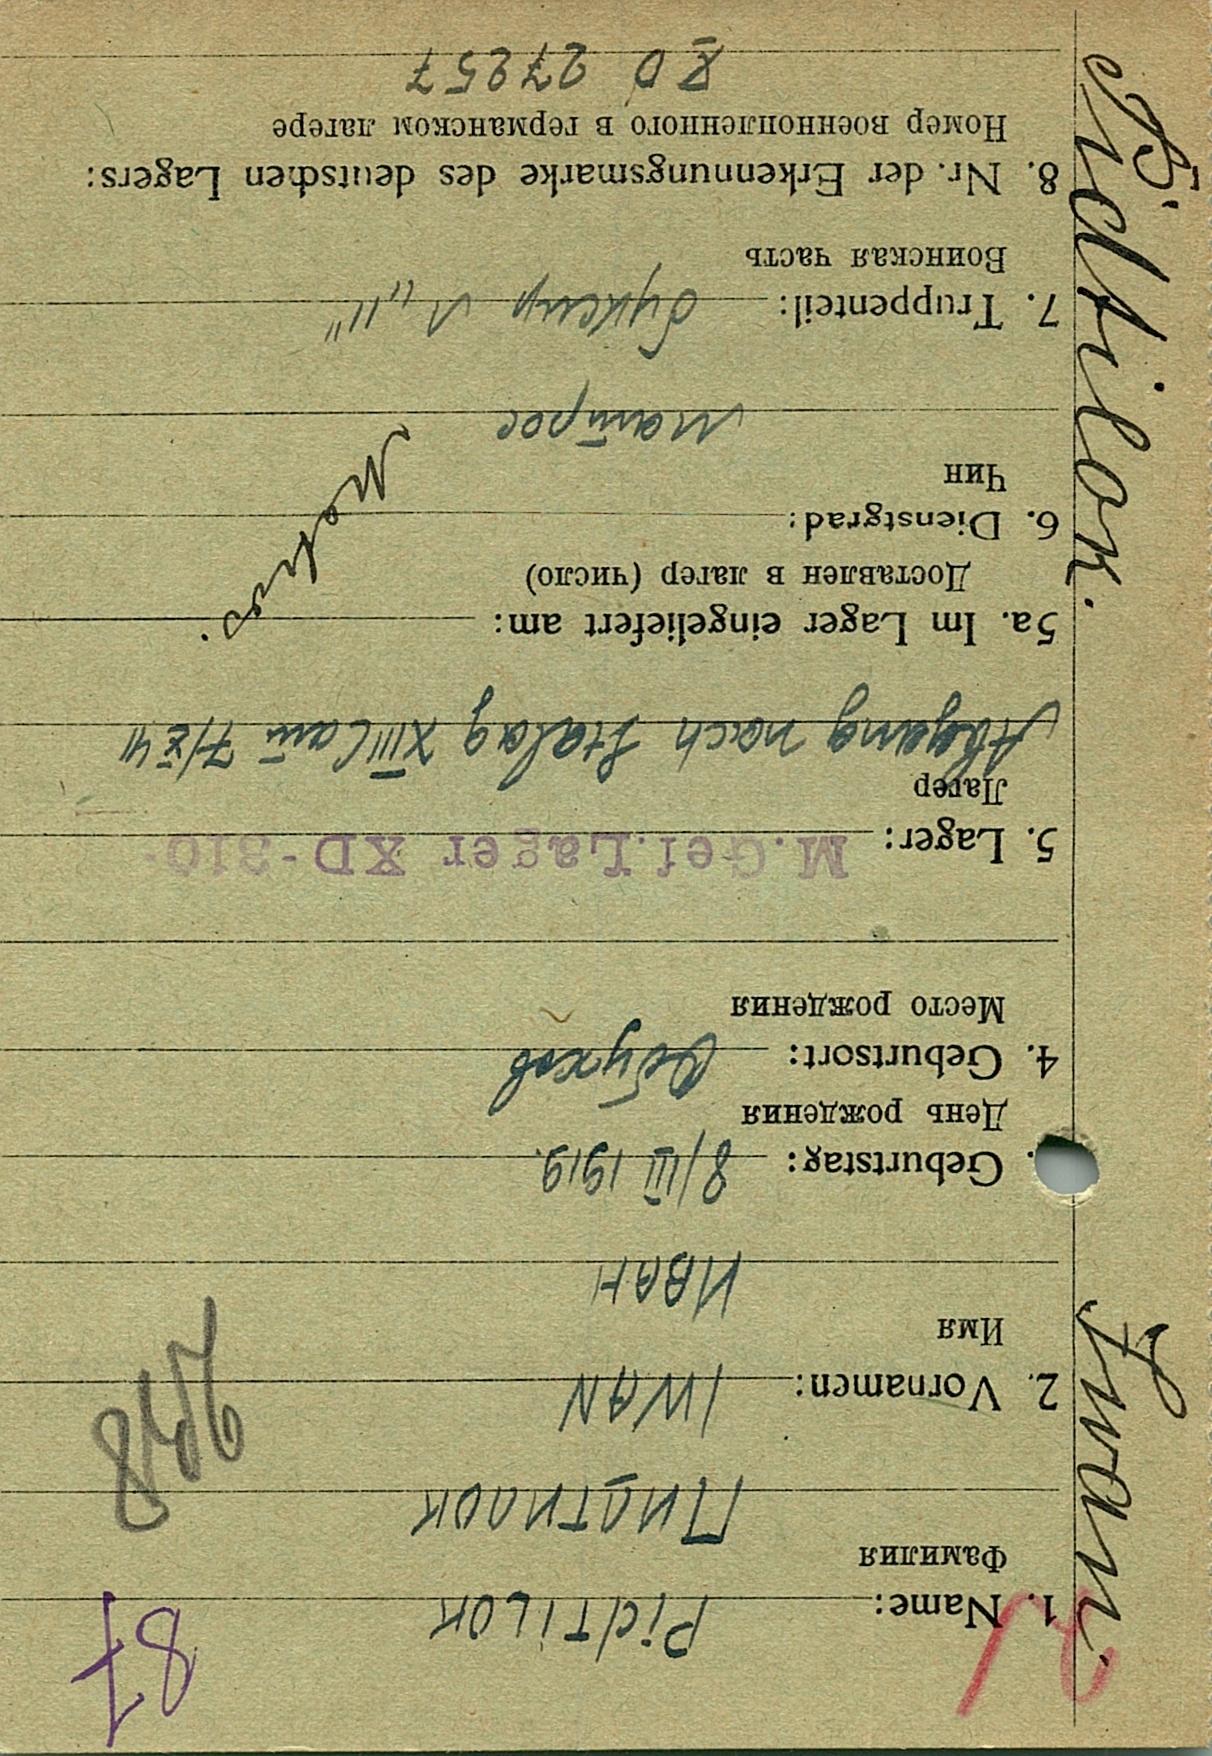 87
1. Name: PidTiLOK
Фамилия
Пидтилок
2. Vornamen: IWAN
Имя
ИВАН
. Geburtstag: 8/III 1919.
День рождения
4. Geburtsort: Обухов
Место рождения
5. Lager: M.Gef.Lager XD-310
Лагер
Abgang nach Stalag XIIIC am 7/X 41
5a. Im Lager eingeliefert am:
Доставлен в лагер (число)
6. Dienstgrad:
Чин
матрос
Matros.
7. Truppenteil: буксир
Воинская часть
8. Nr. der Erkennungsmarke des deutschen Lagers:
Номер военнопленного в германском лагере
XD 27257
Iwan. Pidtilok.